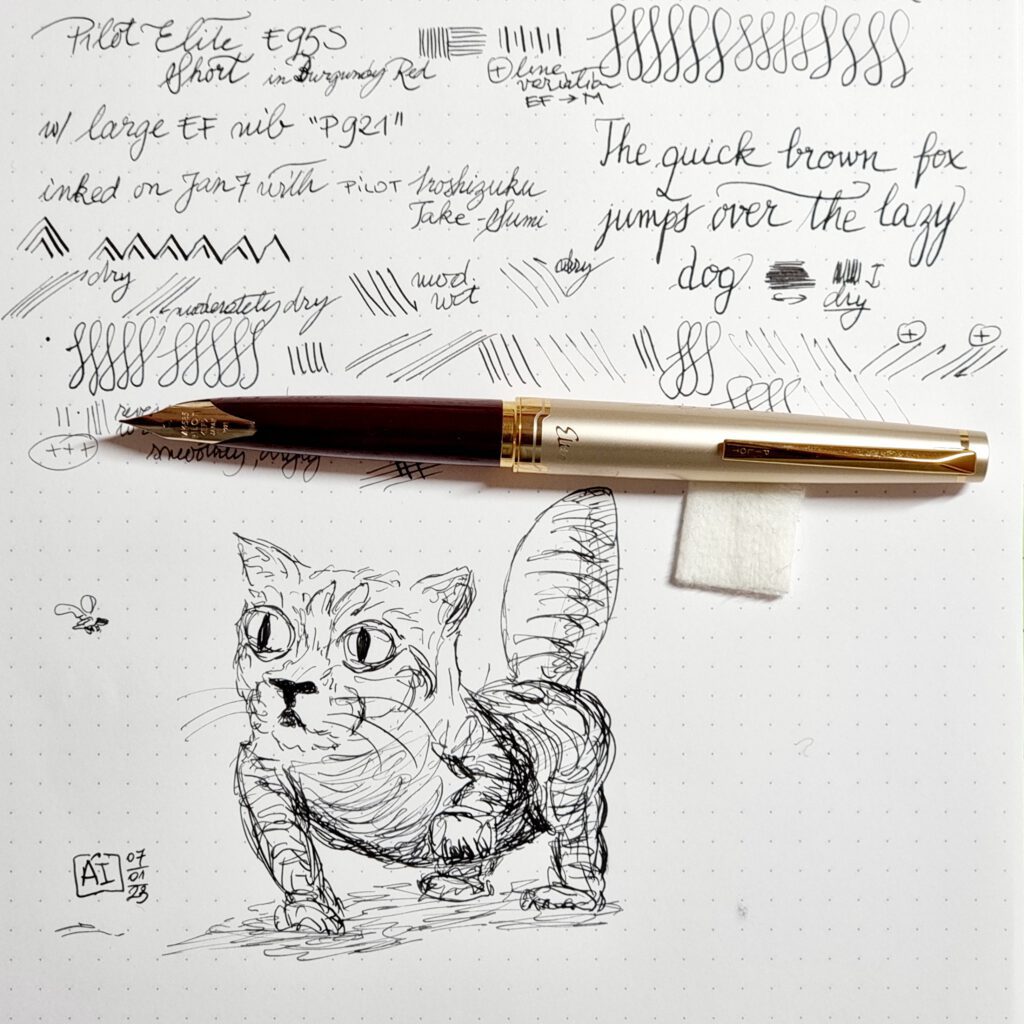 Pilot Elite E95S
Short in Burgundy Red
w/ large EF nib "P921"
inked on Jan 7 with PILOT Iroshizuku
Take-Sumi
+ line
variation
EF → M
The quick brown fox
jumps over the lazy
dog
dry
dry
moderately dry
mod.
wet
dry
+ +
+++
smoothly,
Elite
PILOT
AI 07
01
23